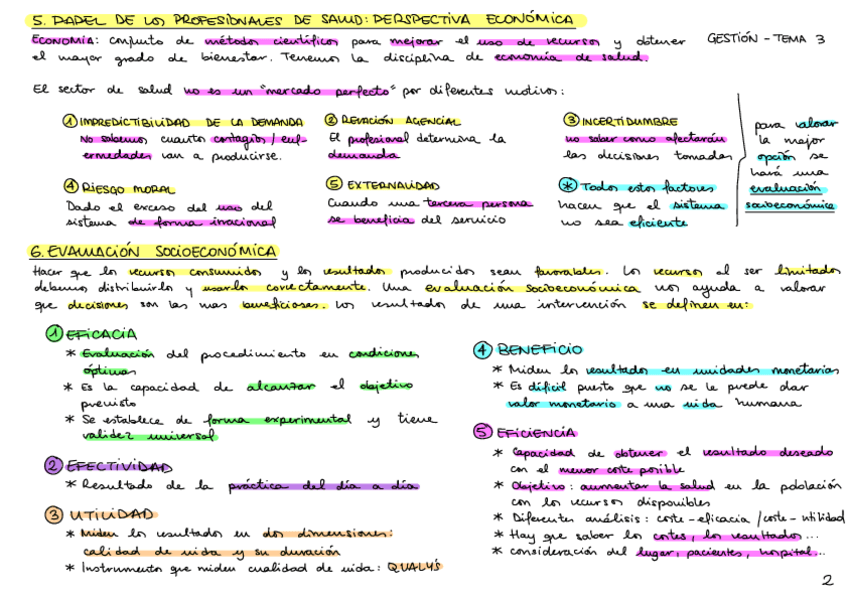 5. PAPEL DE LOS PROFESIONALES DE SALUD: PERSPECTIVA ECONÓMICA
GESTIÓN - TEMA 3
ECONOMIA: conjunto de métodos científicos para mejorar el uso de recursos y obtener
el mayor grado de bienestar. Tenemos la disciplina de economía de salud.
El sector de salud no es un "mercado perfecto" por diferentes motivos:
① IMPREDICTIBILIDAD DE LA DEMANDA
No sabemos cuantos contagios / enf-
ermedades van a producirse.
② RELACIÓN AGENCIAL
El profesional determina la
demanda
③ INCERTIDUMBRE
no saber como afectarán
las decisiones tomadas
④ RIESGO MORAL
Dado el exceso del uso del
sistema de forma irracional
⑤ EXTERNALIDAD
Cuando una tercera persona
se beneficia del servicio
* Todos estos factores
hacen que el sistema
no sea eficiente
para valorar
la mejor
opción se
hará una
evaluación
socioeconómica
6. EVALUACIÓN SOCIOECONÓMICA
Hacer que los recursos consumidos y los resultados producidos sean favorables. Los recursos al ser limitados
debemos distribuirlos y usarlos correctamente. Una evaluación socioeconómica nos ayuda a valorar
que decisiones son las mas beneficiosas. Los resultados de una intervención se definen en:
① EFICACIA
* Evaluación del procedimiento en condiciones
óptimas
* Es la capacidad de alcanzar el objetivo
previsto
* Se establece de forma experimental y tiene
validez universal
② EFECTIVIDAD
* Resultado de la práctica del día a día
③ UTILIDAD
* Miden los resultados en dos dimensiones:
calidad de vida y su duración
* Instrumento que miden cualidad de vida: QUALY'S
④ BENEFICIO
* Miden los resultados en unidades monetarias
* Es difícil puesto que no se le puede dar
valor monetario a una vida humana
⑤ EFICIENCIA
* Capacidad de obtener el resultado deseado
con el menor coste posible
* Objetivo: aumentar la salud en la población
con los recursos disponibles
* Diferentes análisis: coste-eficacia / coste-utilidad
* Hay que saber los costes, los resultados...
* consideración del lugar, pacientes, hospital...
2